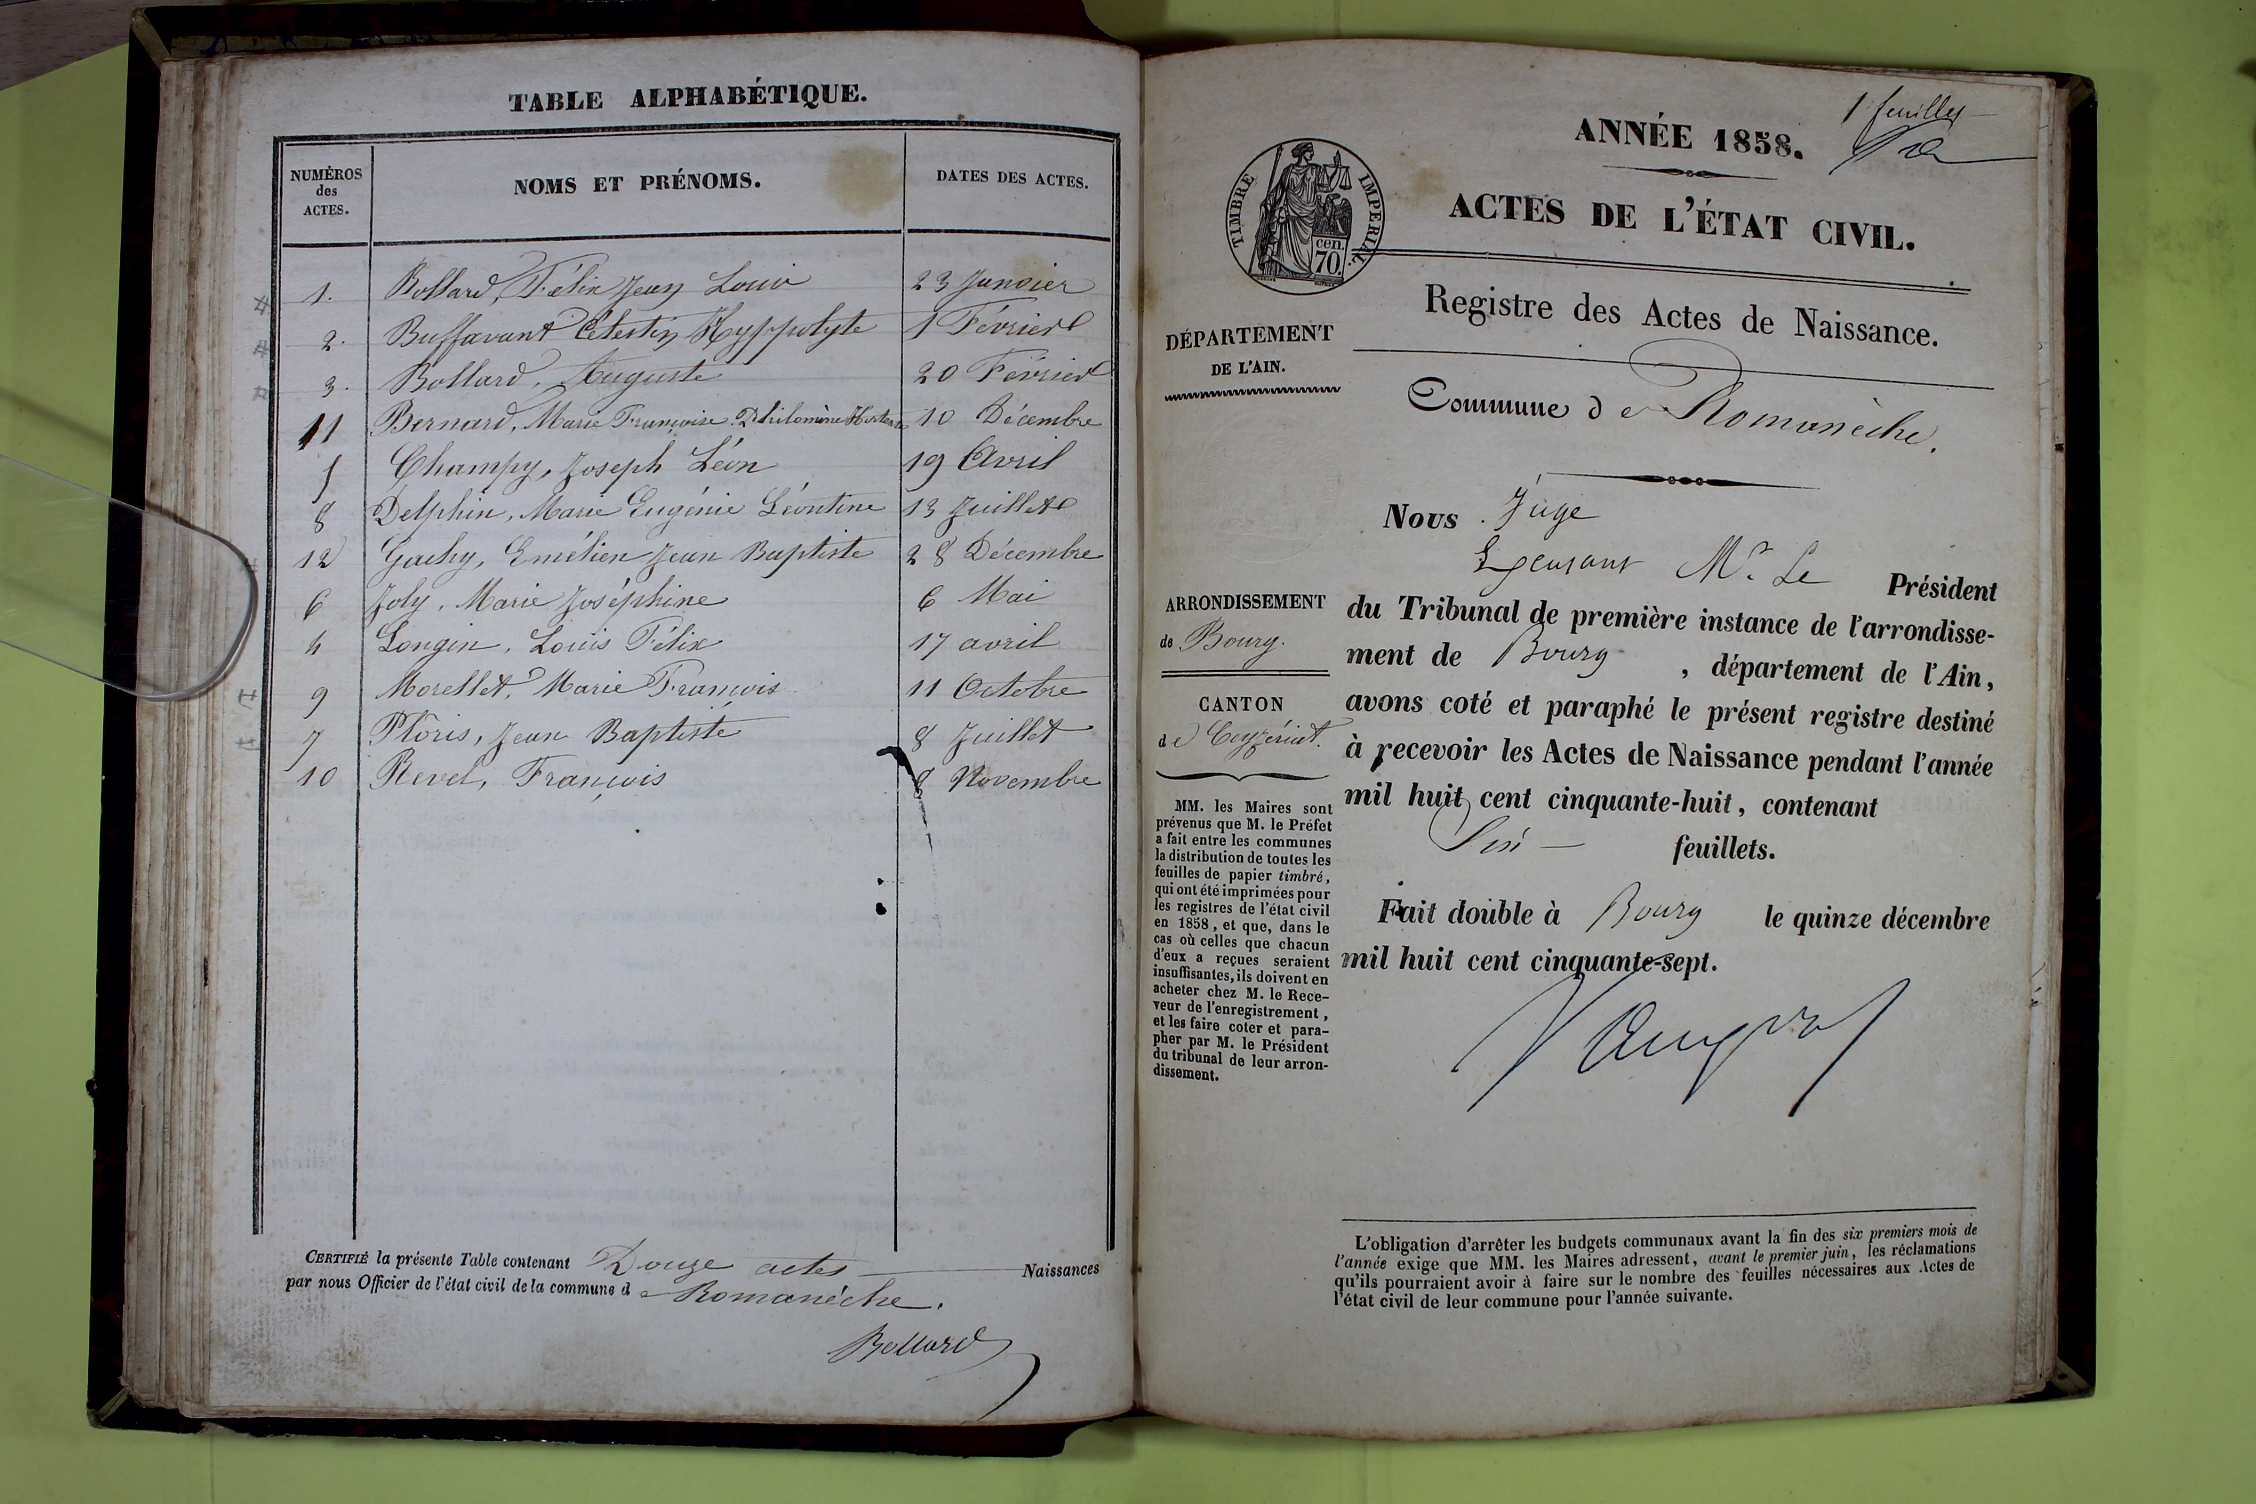 TABLE ALPHABÉTIQUE.
NUMÉROS des ACTES. NOMS ET PRÉNOMS. DATES DES ACTES.
1. Bollard, Félix Jean Louis 23 Janvier
2. Buffavant Célestin Hyppolyte 1 Février
3. Bollard, Auguste 20 Février
11 Bernard, Marie Françoise Philomène Hortense 10 Décembre
5 Champy, Joseph Léon 19 Avril
8 Delphin, Marie Eugénie Léontine 13 Juillet
12 Gachy, Emélien Jean Baptiste 28 Décembre
6 Joly, Marie Joséphine 6 Mai
4 Longin, Louis Félix 17 avril
9 Morellet, Marie François 11 Octobre
7 Ploris, Jean Baptiste 8 Juillet
10 Revel, François 8 Novembre
CERTIFIÉ la présente Table contenant Douze actes Naissances
par nous Officier de l'état civil de la commune de Romanèche.
Bollard
1 feuillet
ANNÉE 1858.
ACTES DE L'ÉTAT CIVIL.
TIMBRE IMPÉRIAL
cen. 70.
Registre des Actes de Naissance.
DÉPARTEMENT
DE L'AIN.
Commune de Romanèche.
ARRONDISSEMENT
de Bourg.
CANTON
de Ceyzériat.
MM. les Maires sont
prévenus que M. le Préfet
a fait entre les communes
la distribution de toutes les
feuilles de papier timbré,
qui ont été imprimées pour
les registres de l'état civil
en 1858, et que, dans le
cas où celles que chacun
d'eux a reçues seraient
insuffisantes, ils doivent en
acheter chez M. le Rece-
veur de l'enregistrement,
et les faire coter et para-
pher par M. le Président
du tribunal de leur arron-
dissement.
Nous Juge
Mr. Le Président
du Tribunal de première instance de l'arrondisse-
ment de Bourg, département de l'Ain,
avons coté et paraphé le présent registre destiné
à recevoir les Actes de Naissance pendant l'année
mil huit cent cinquante-huit, contenant
Six feuillets.
Fait double à Bourg le quinze décembre
mil huit cent cinquante-sept.
L'obligation d'arrêter les budgets communaux avant la fin des six premiers mois de
l'année exige que MM. les Maires adressent, avant le premier juin, les réclamations
qu'ils pourraient avoir à faire sur le nombre des feuilles nécessaires aux Actes de
l'état civil de leur commune pour l'année suivante.